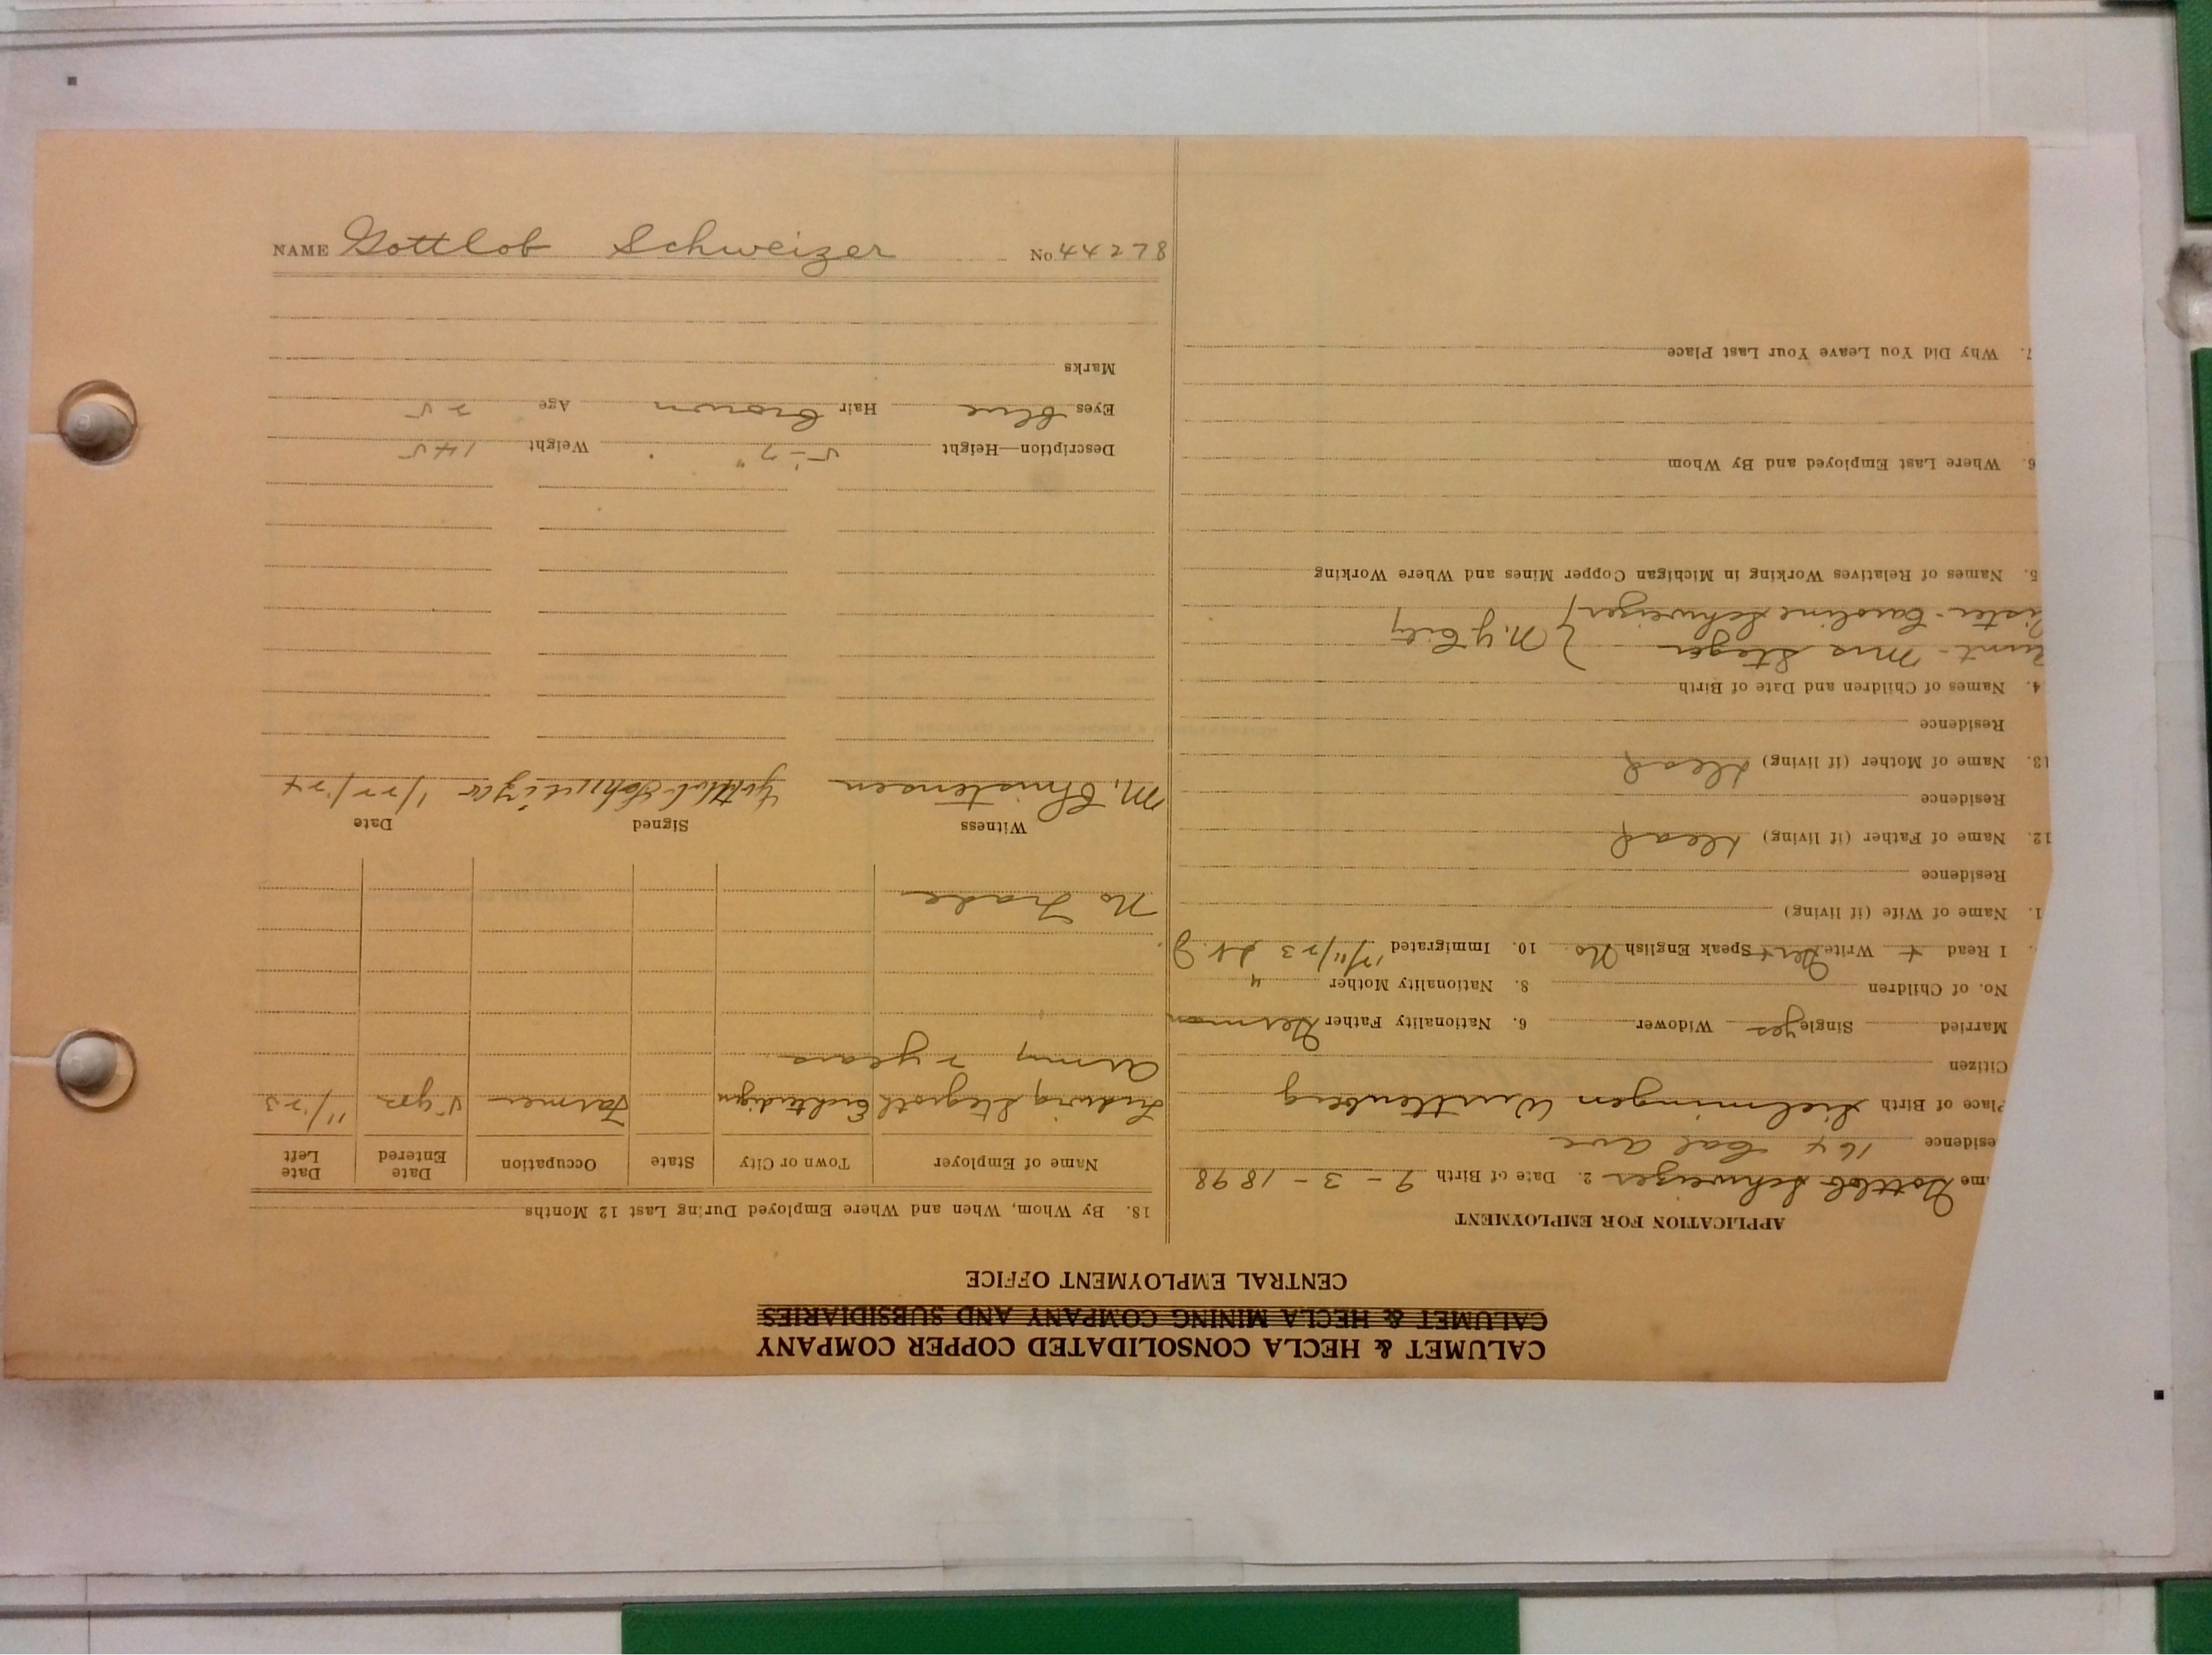 NAME Gottlob Schweizer No. 44278
CALUMET & HECLA CONSOLIDATED COPPER COMPANY
CALUMET & HECLA MINING COMPANY AND SUBSIDIARIES
CENTRAL EMPLOYMENT OFFICE
APPLICATION FOR EMPLOYMENT
me Gottlob Schweizer 2. Date of Birth 9 - 3 - 1898
esidence 164 Cal ave
Place of Birth Sielmingen Wurttenberg
Citizen
Married Single yes Widower 6. Nationality Father German
No. of Children 8. Nationality Mother "
I Read + Write Speak English No 10. Immigrated
1. Name of Wife (if living)
Residence
12. Name of Father (if living) Dead
Residence
13. Name of Mother (if living) Dead
Residence
4. Names of Children and Date of Birth
aunt - Mrs Steger } N.Y. City
Sister - Caroline Schweizer
5. Names of Relatives Working in Michigan Copper Mines and Where Working
6. Where Last Employed and By Whom
7. Why Did You Leave Your Last Place
18. By Whom, When and Where Employed During Last 12 Months
Name of Employer Town or City State Occupation Date Entered Date Left
Ludwig Farmer 5 yrs 11/23
Army 2 years
No Trade
Witness Signed Date
M. Christensen Gottlob Schweizer 1/22/24
Description—Height 5'-7" Weight 145
Eyes blue Hair brown Age 25
Marks